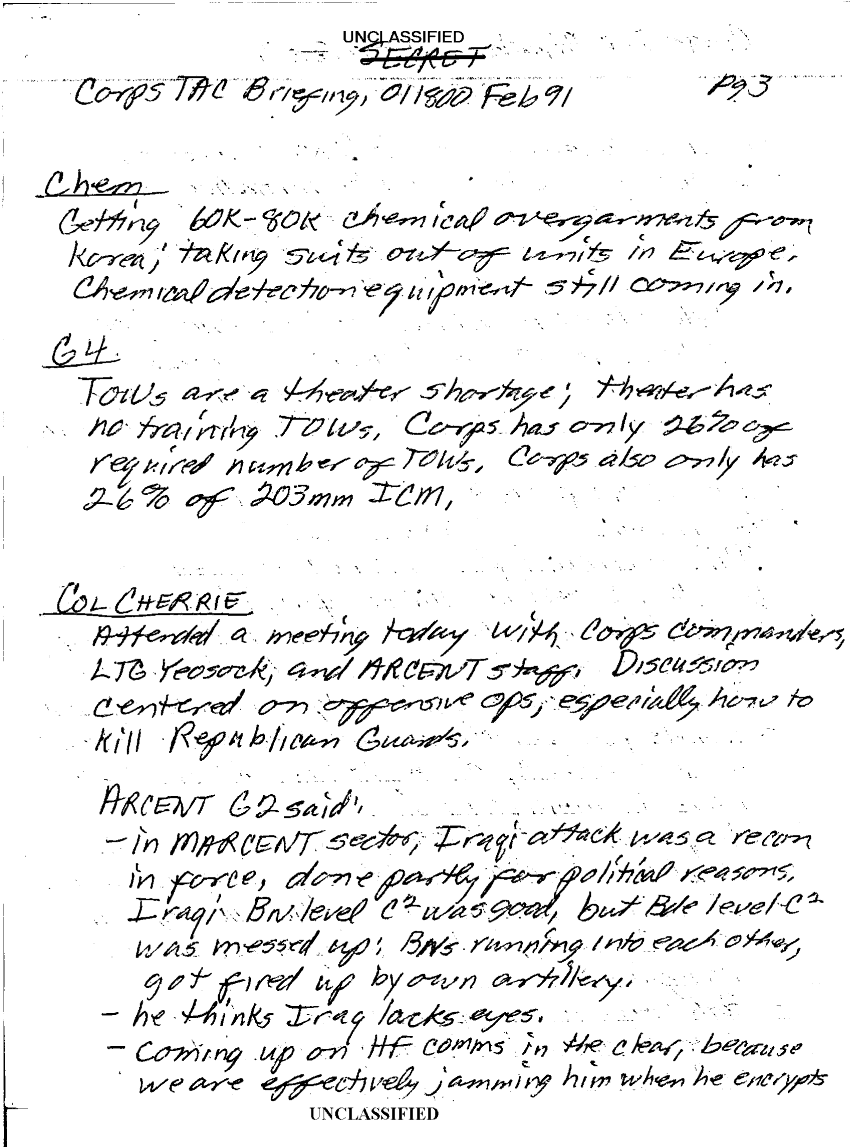 UNCLASSIFIED
SECRET
Corps TAC Briefing, 011800 Feb 91 Pg 3
Chem
Getting 60K-80K chemical overgarments from
Korea; taking suits out of units in Europe.
Chemical detection equipment still coming in.
G4
TOWs are a theater shortage; theater has
no training TOWs. Corps has only 26% of
required number of TOWs. Corps also only has
26% of 203mm ICM.
COL CHERRIE
Attended a meeting today with Corps Commanders,
LTG Yeosock, and ARCENT staff. Discussion
centered on offensive ops, especially how to
kill Republican Guards.
ARCENT G2 said:
- in MARCENT sector, Iraqi attack was a recon
in force, done partly for political reasons.
Iraqi BN level C² was good, but Bde level C²
was messed up: BNs running into each other,
got fired up by own artillery.
- he thinks Iraq lacks eyes.
- Coming up on HF comms in the clear, because
we are effectively jamming him when he encrypts
UNCLASSIFIED